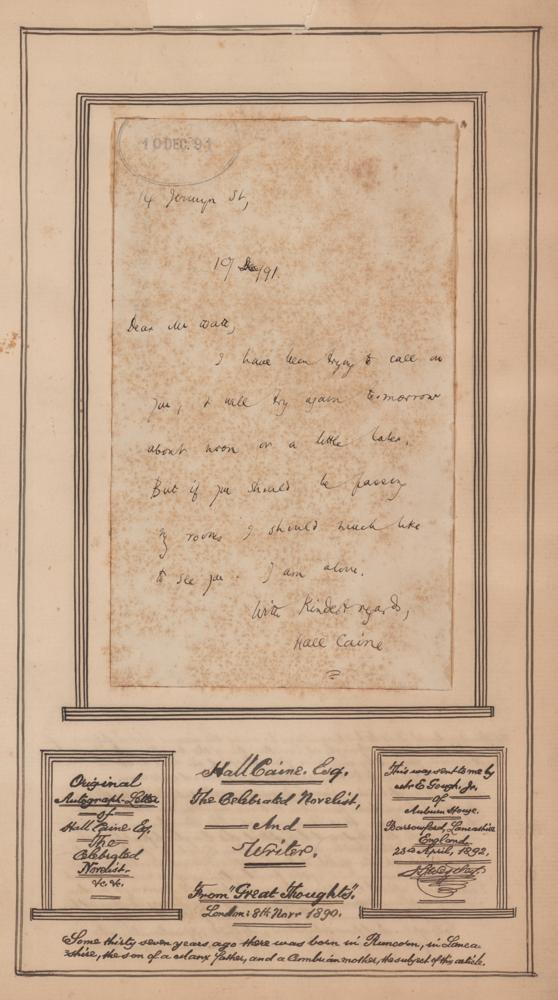 10 DEC. 91
14 Jermyn St,
10 Dec/91.
Dear Mr Watt,
I have been trying to call on
you, & will try again tomorrow
about noon or a little later.
But if you should be passing
my rooms I should much like
to see you. I am alone.
With Kindest regards,
Hall Caine
Original
Autograph-Letter
of
Hall Caine Esq.
The
Celebrated
Novelist.
&c. &c.
Hall Caine. Esq.
The Celebrated Novelist,
And
Writer.
From "Great Thoughts".
London: 8th Novr 1890.
This was sent to me by
Mr E Gough, Jr.
of
Auburn House.
Barrowford, Lancashire
England.
23rd April, 1892.
Some thirty seven years ago there was born in Runcorn, in Lanca-
shire, the son of a Manx father, and a Cumbrian mother, the subject of this article.